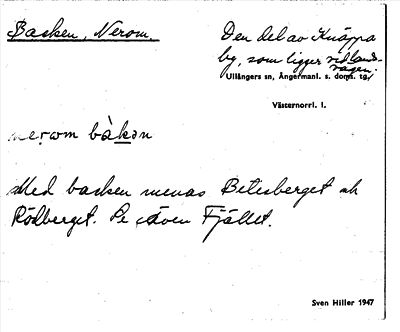 Backen, Nerom.
Den del av Knäppa
by, som ligger vid lands-
vägen.
Ullångers sn, Ångermanl. s. doms.
Västernorrl. l.
nerom bàkən
Med backen menas Betesberget och
Rödberget. Se även Fjället.
Sven Hiller 1947